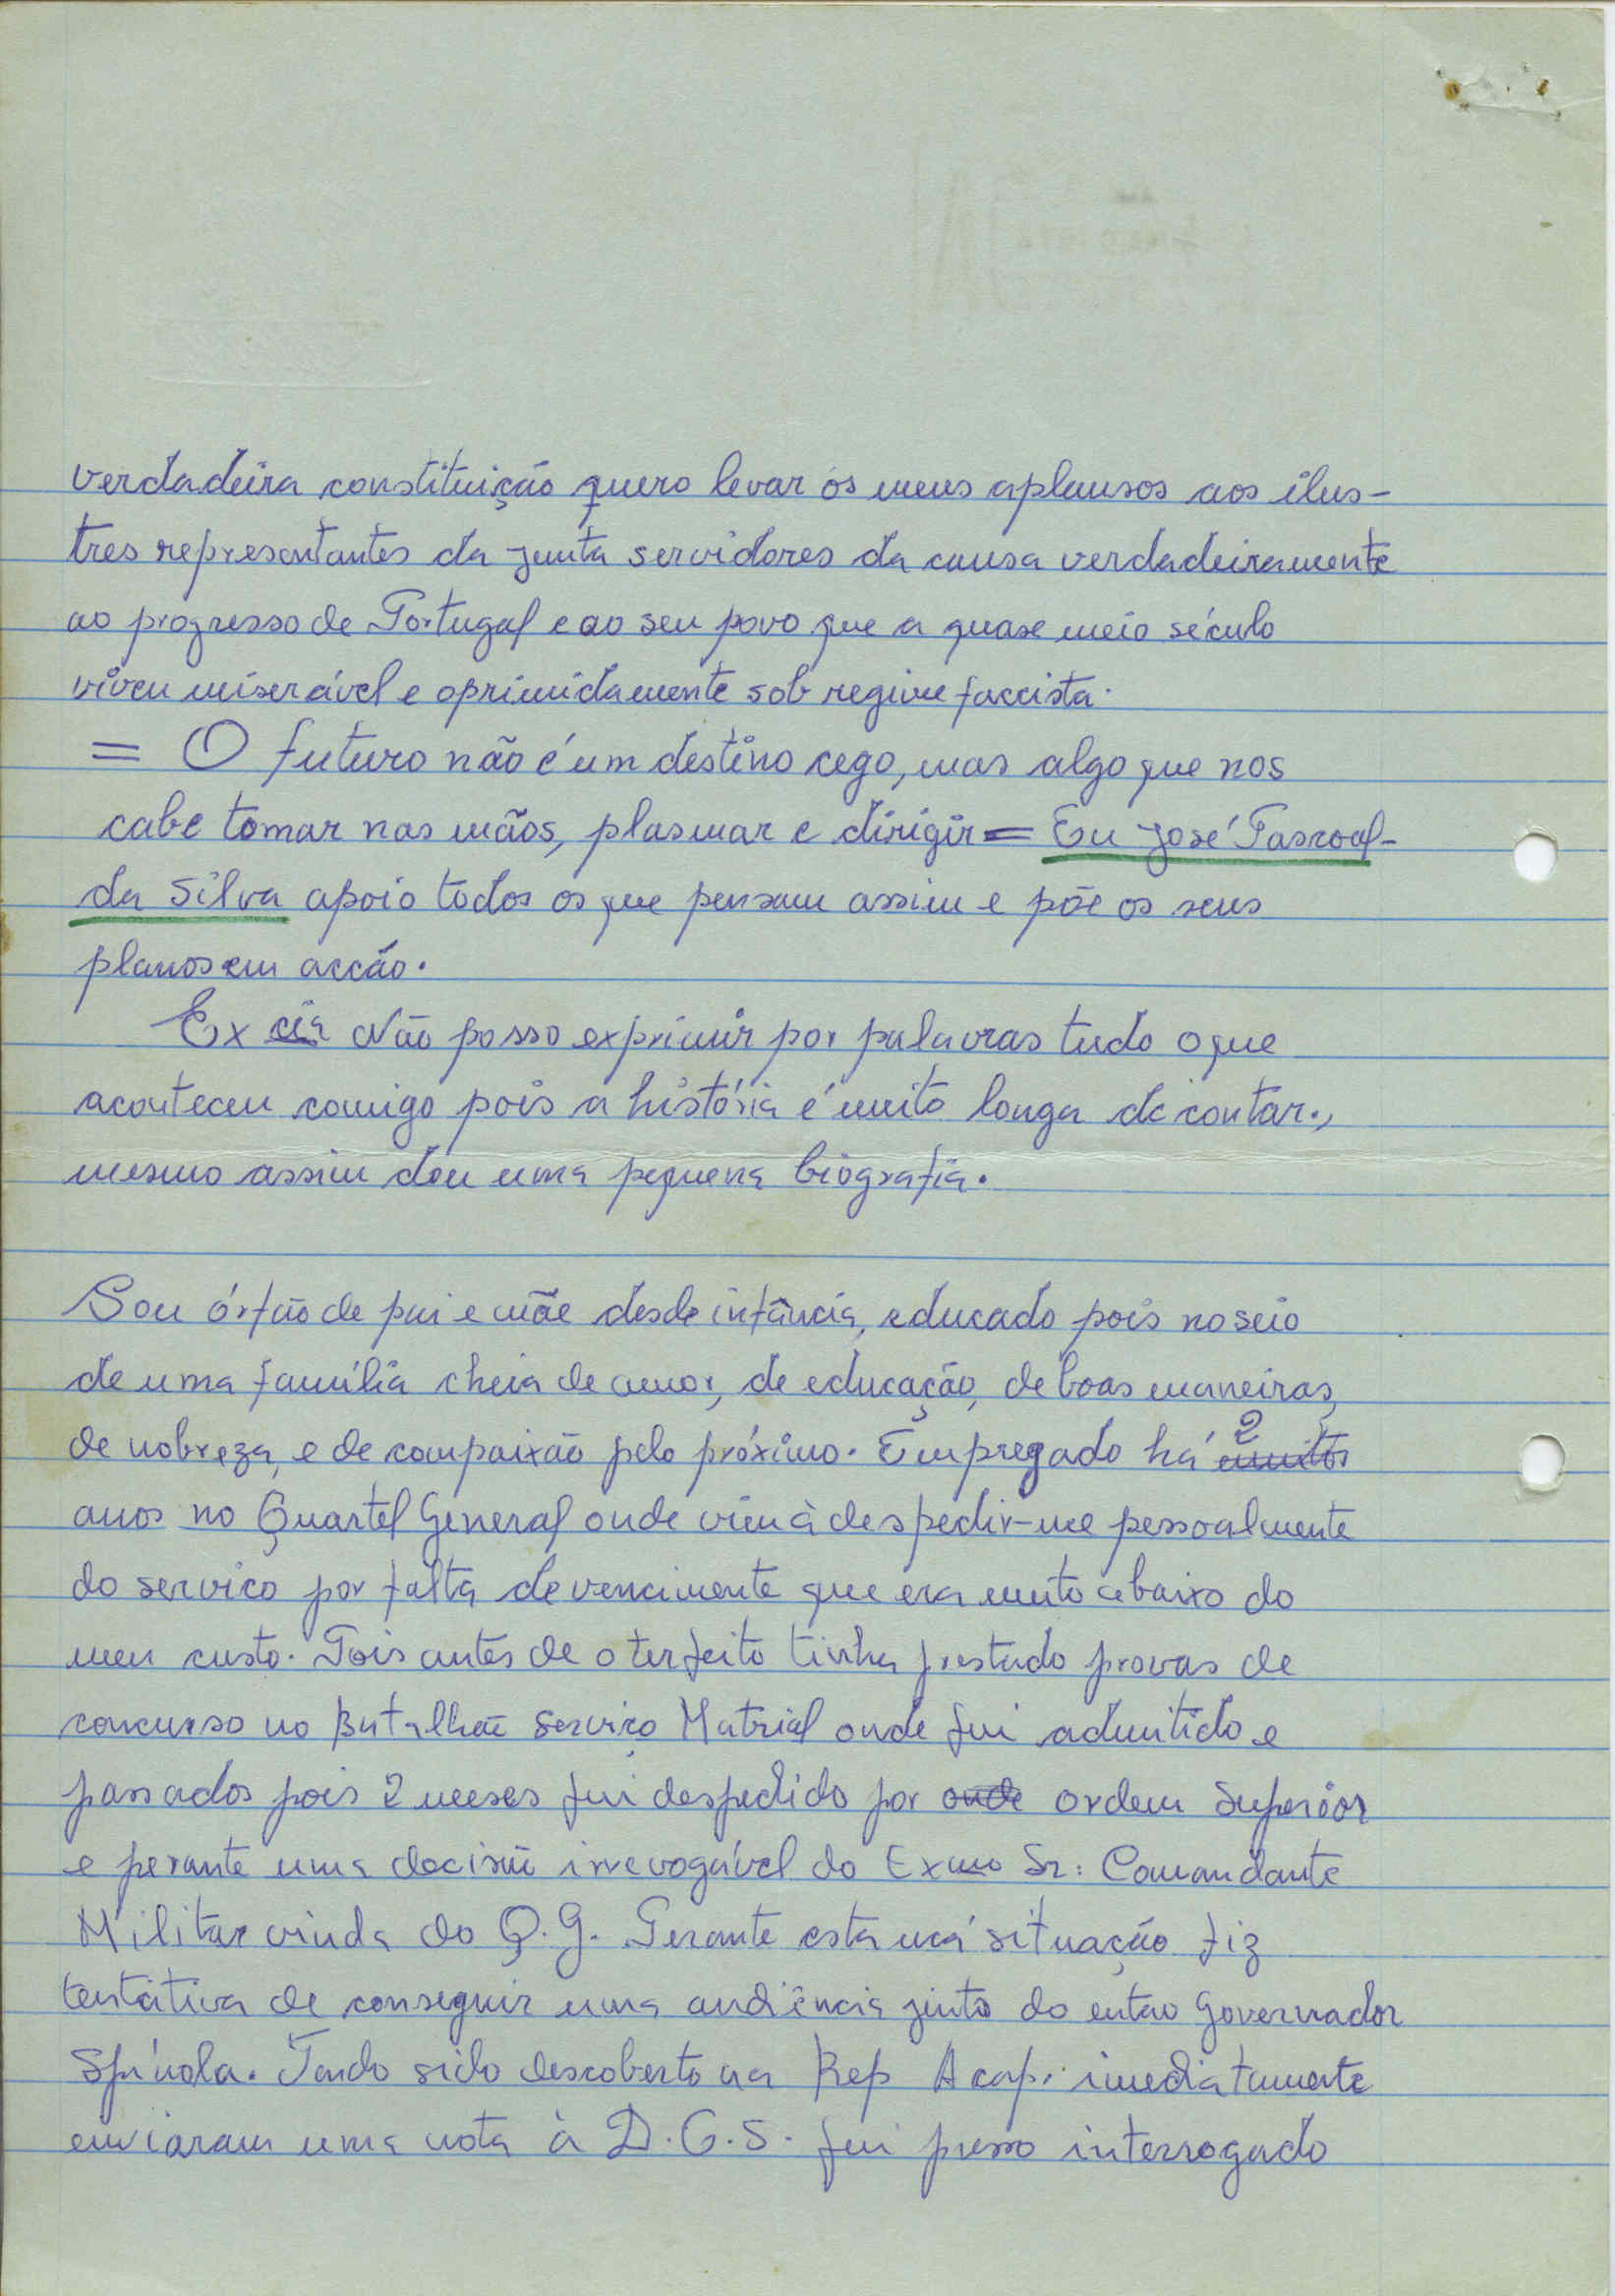 verdadeira constituição quero levar os meus aplausos aos ilus-
tres representantes da junta servidores da causa verdadeiramente
ao progresso de Portugal e ao seu povo que a quase meio século
viveu miserável e oprimidamente sob regime faccista.
= O futuro não é um destino cego, mas algo que nos
cabe tomar nas mãos, plasmar e dirigir = Eu José Pascoal-
da Silva apoio todos os que pensam assim e põe os seus
planos em acção.
Ex cia Não posso exprimir por palavras tudo o que
aconteceu comigo pois a história é muito longa de contar.,
mesmo assim dou uma pequena biografia.
Sou órfão de pai e mãe desde infância, educado pois no seio
de uma família cheia de amor, de educação, de boas maneiras,
de nobreza, e de compaixão pelo próximo. Empregado há 2 muitos
anos no Quartel General onde vim à despedir-me pessoalmente
do serviço por falta de vencimente que era muto abaixo do
meu custo. Pois antes de o ter feito tinha prestado provas de
concurso no Batalhão Serviço Matrial onde fui admitido e
passados pois 2 meses fui despedido por onde ordem Superior
e perante uma decisão irrevogável do Exmo Sr: Comandante
Militar vinda do Q.G. Perante esta má situação fiz
tentativa de conseguir uma audiência junto do então Governador
Spínola. Tendo sido descoberto na Rep Acap. imediatamente
enviaram uma nota à D.G.S. fui preso interrogado